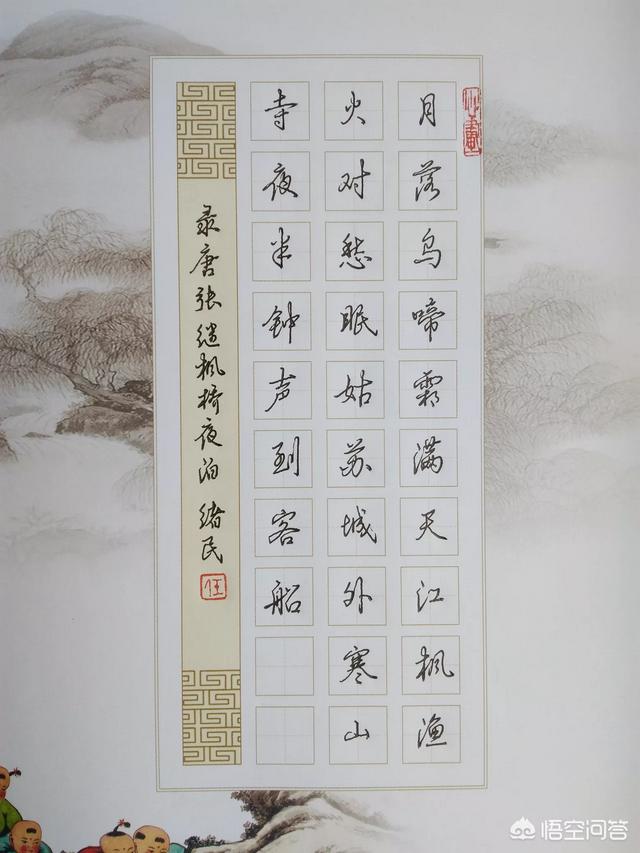 月落乌啼霜满天江枫渔
火对愁眠姑苏城外寒山
寺夜半钟声到客船
录唐张继枫桥夜泊 绪民
任
悟空问答